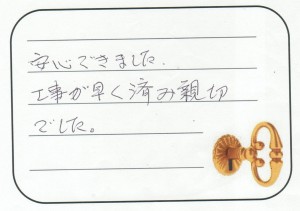 安心できました.
工事が早く済み親切
でした。